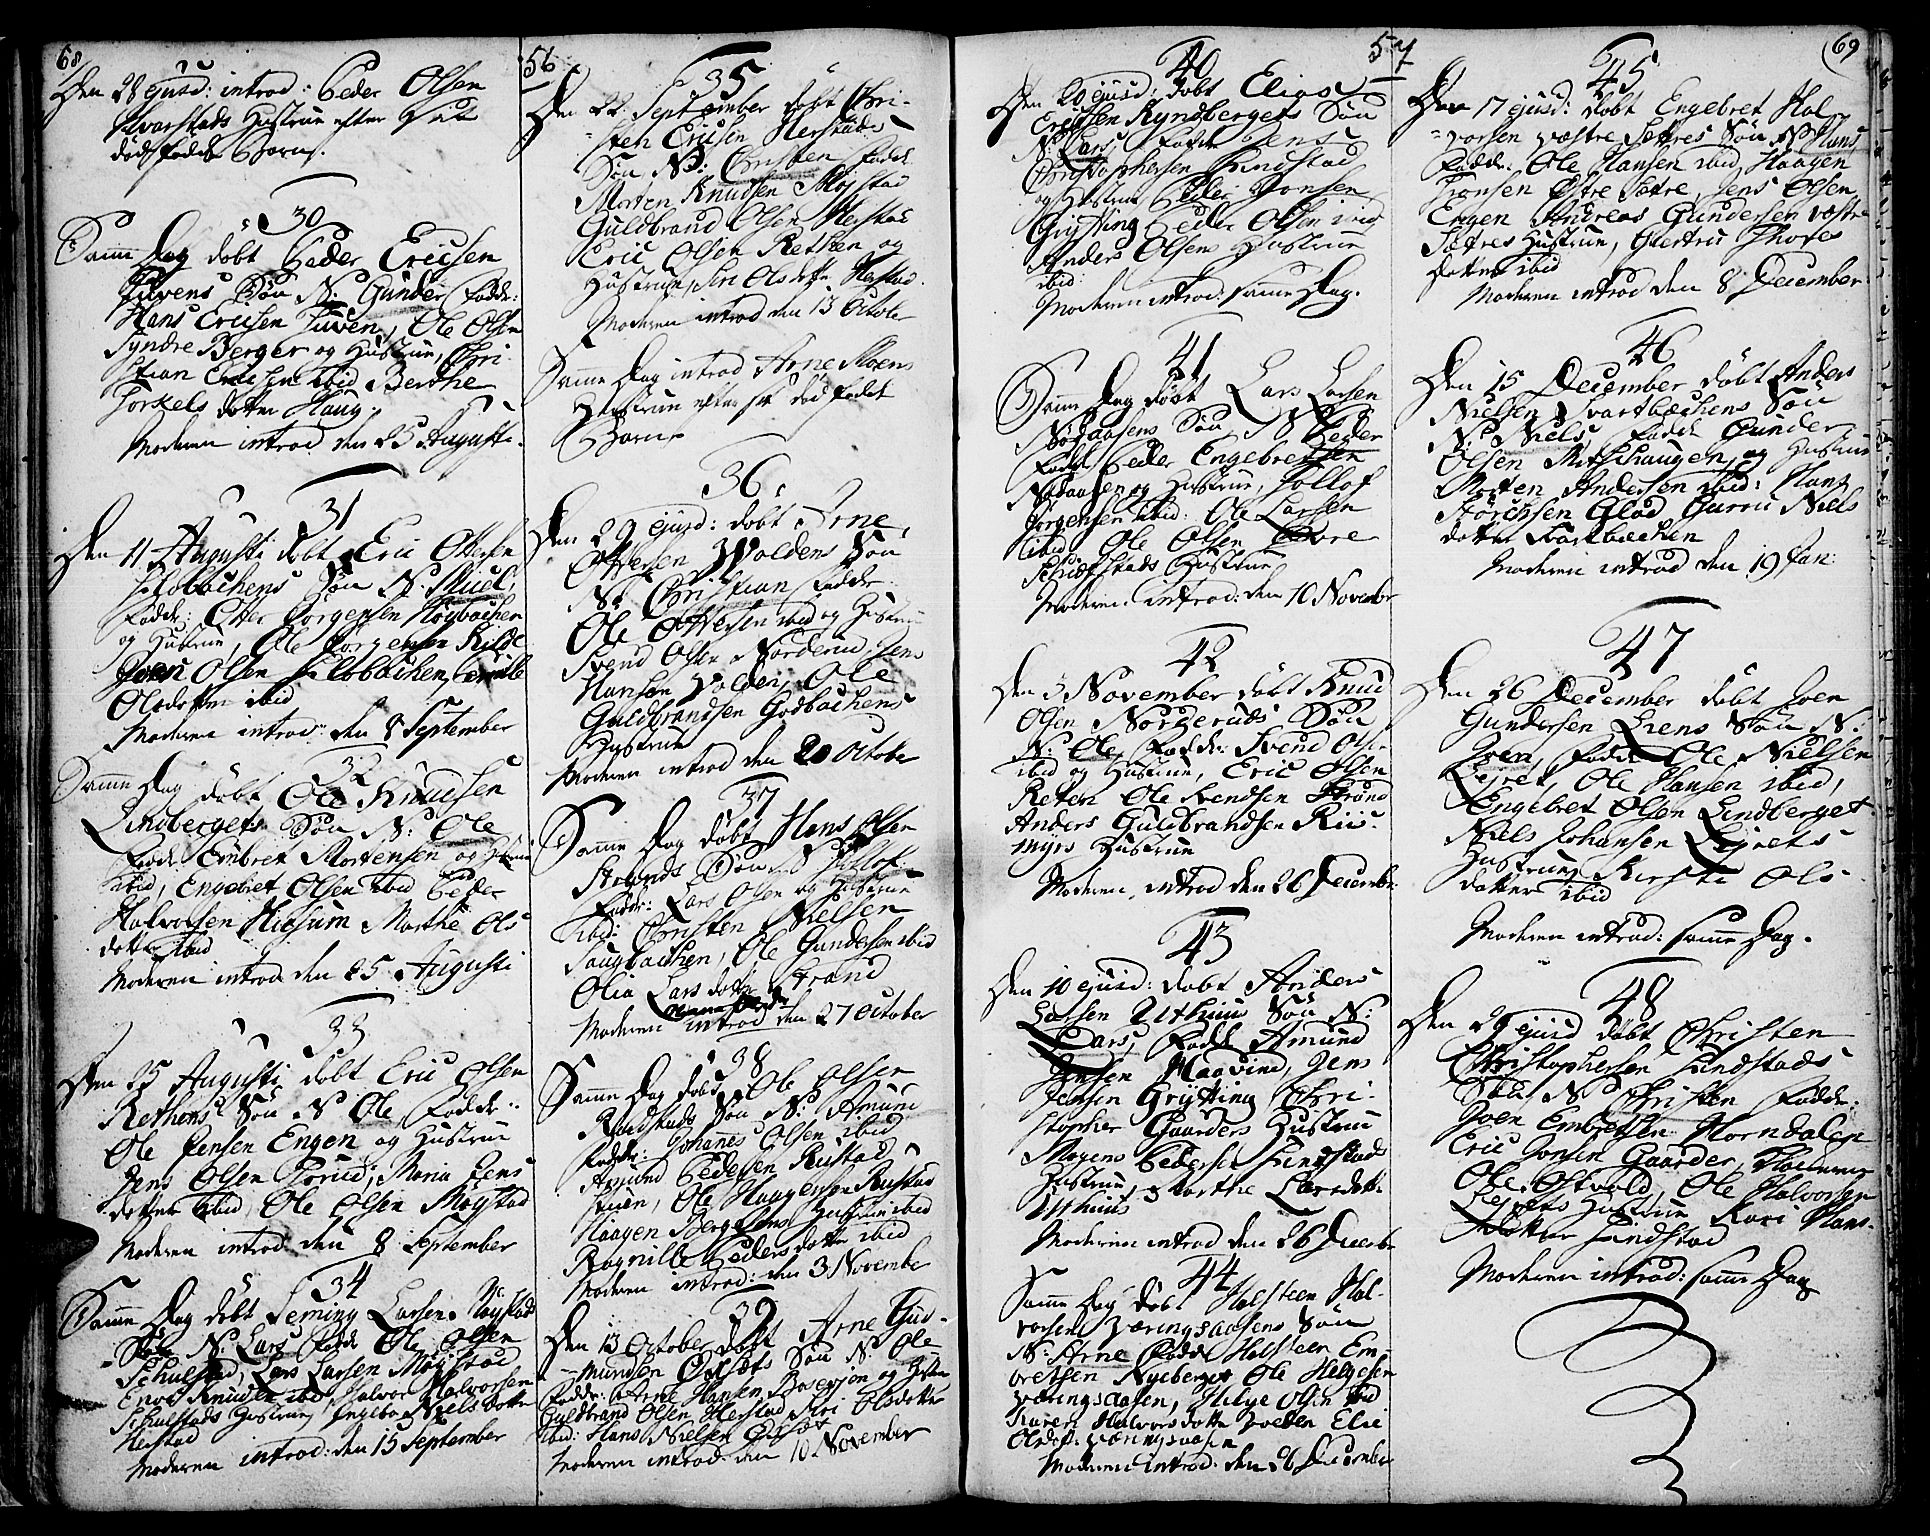 68
Den 28 ejusd: introd: Peder Olsen
Kvarstads Hustrue efter sit
dødfødde Barn.
30
Samme Dag døbt Peder Ericsen
Tuvens Søn N: Gunder, Fadd:
Hans Ericsen Tuven, Ole Olsen
Syndre Berger og Hustrue, Chri-
stian Ericsen ibid Berthe
Torkels datter Haug.
Moderen introd den 25 Augusti.
31
Den 11 Augusti døbt Eric Ottersen
Søn N.
Fadder: Otter Jørgensen
og Hustrue, Ole Jørgensen
Joen Olsen
Olsdatter ibid
Moderen introd: den 8 September
32
Samme Dag døbt Ole Knudsen
Lindbergets Søn N: Ole
Fadd: Embret Mortensen og Hustrue
ibid, Engebret Olsen ibid Peder
Halvorsen Marthe Ols
datter ibid
Moderen introd den 25 Augusti
33
Den 25 Augusti døbt Eric Olsen
Rethens Søn N Ole, Fadder:
Ole Jensen Engen og Hustrue
Jens Olsen Maria Jens
datter ibid, Ole Olsen Møystad
Moderen introd: den 8 September
34
Samme Dag døbt Seming Larsen Møystads
Søn N: Lars Fadd Ole Olsen
Schulstad, Lars Larsen Møystad
Knudsen ibid, Halvor Halvorsen
Schulstads Hustrue, Ingebor Niels datter
Herstad
Moderen introd: den 15 September
56
35
Den 22 September døbt Chri-
sten Ericsen Herstads
Søn N: Christen Fadd:
Morten Knudsen Møystad
Guldbrand Olsen Herstad
Eric Olsen Rethen og
Hustrue, Siri Olsdatter Herstad.
Moderen introd den 13 October
Samme Dag introd Arne Moens
Hustrue efter sit dødfødt
Barn
36
Den 29 ejusd: døbt Arne
Ottersen Woldens Søn
N: Christian, Fadder:
Ole Ottersen ibid og Hustrue
Svend Olsen Norderud, Jens
Hansen Volden, Ole
Guldbrandsen Godbachens
Hustrue
Moderen introd den 20 October
37
Samme Dag døbt Hans Olsen
Strands Søn N Tollof
Fadder: Lars Olsen og Hustrue
ibid: Christen Nielsen
Saugbachen, Ole Gundersen ibid
Olia Lars datter Strand
Moderen introd den 27 October
38
Samme Dag døbt Ole Olsen
Rudstads Søn N: Amund
Fadder: Johannes Olsen ibid
Amund Pedersen Rustad
stuen, Ole Haagensen Rustad
Haagen Bergesens Hustrue ibid
Ragnille Peders datter ibid
Moderen introd: den 3 November
39
Den 13 October døbt Arne Gud-
mundsen Søn N: Ole
Fadder: Arne Hansen og Hustrue
Guldbrand Olsen Herstad Siri Olsdatter
ibid: Hans Nielsen
Moderen introd: den 10 November
57
40
Den 20 ejusd: døbt Elias
Ericsen Kyndbergets Søn
N: Lars, Fadder Jens
Christophersen Findstad
og Hustrue Peder Jonsen
Grytting Peder Olsen ibid
Anders Olsens Hustrue
ibid:
Moderen introd. samme Dag.
41
Samme Dag døbt Lars Larsen
Nordaasens Søn N Peder
Fadd Peder Engebretsen
Nordaasen og Hustrue, Tollof
Jørgensen ibid: Ole Larsen
ibid Ole Olsen
Hustrue
Moderen introd: den 10 November
42
Den 3 November døbt Knud
Olsen Norderuds Søn
N: Ole, Fadder Svend Olsen
ibid og Hustrue, Eric Olsen
Reten Ole Svendsen Strand
Anders Guldbrandsen Riis-
myrs Hustrue
Moderen introd den 26 December
43
Den 10 ejusd: døbt Anders
Larsen Usthuus Søn N:
Lars, Fadd Amund
Jensen Haavind, Jens
Jensen Grytting Chri-
stopher Gaarders Hustrue
Mogens Pedersen Findstads
Hustrue, Marthe Larsdatter
Usthuus
Moderen introd den 26 December
44
Samme Dag døbt Halsteen Hal-
vorsen Væringsaasens Søn
N: Arne Fadd Halsteen Em-
bretsen Nyeberget Ole Helgesen
Væringsaasen, Helge Olsen ibid
Karen Halvors datter Wolden Elie
Olsdatt: Væringsaasen
Moderen introd: den 26 December
69
45
Den 17 ejusd: døbt Engebret Hal-
vorsen Væstre Sætres Søn N Hans
Fadder: Ole Hansen ibid, Haagen
Tronsen Østre Sætre, Jens Olsen
Engen Andreas Gundersen Væstre
Sætres Hustrue, Giertru Thores
datter ibid
Moderen introd den 8 December
46
Den 15 December døbt Anders
Nielsen Svartbæchens Søn
N: Niels, Fadder Gunder
Olsen Mitschaugen og Hustrue
Morten Andersen ibid: Hans
Størchsen Glad Gurru Niels
datter Svartbæchen
Moderen introd den 19 Jan:
47
Den 26 December døbt Joen
Gundersen Liens Søn N:
Joen, Fadder Ole Nielsen
Lejret, Ole Hansen ibid,
Engebret Olsen Lindberget
Niels Johansen Lejrets
Hustrue Kirsti Ols-
datter ibid
Moderen introd: samme Dag.
48
Den 29 ejusd døbt Christen
Christophersen Findstads
Søn N Christen Fadder:
Joen Embretsen Horndalen
Eric Jonsen Gaarder,
Ole Østvold, Ole Halvorsen
Lejrets Hustrue Kari Hans-
datter Findstad
Moderen introd: samme Dag